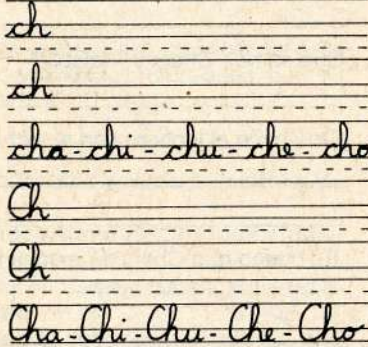 ch
ch
cha - chi - chu - che - cho
Ch
Ch
Cha - Chi - Chu - Che - Cho